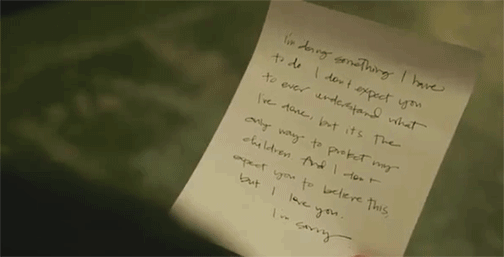 I'm doing something I have
to do. I don't expect you
to ever understand what
I've done, but it's the
only way to protect my
children. And I don't
expect you to believe this,
but I love you.
I'm sorry